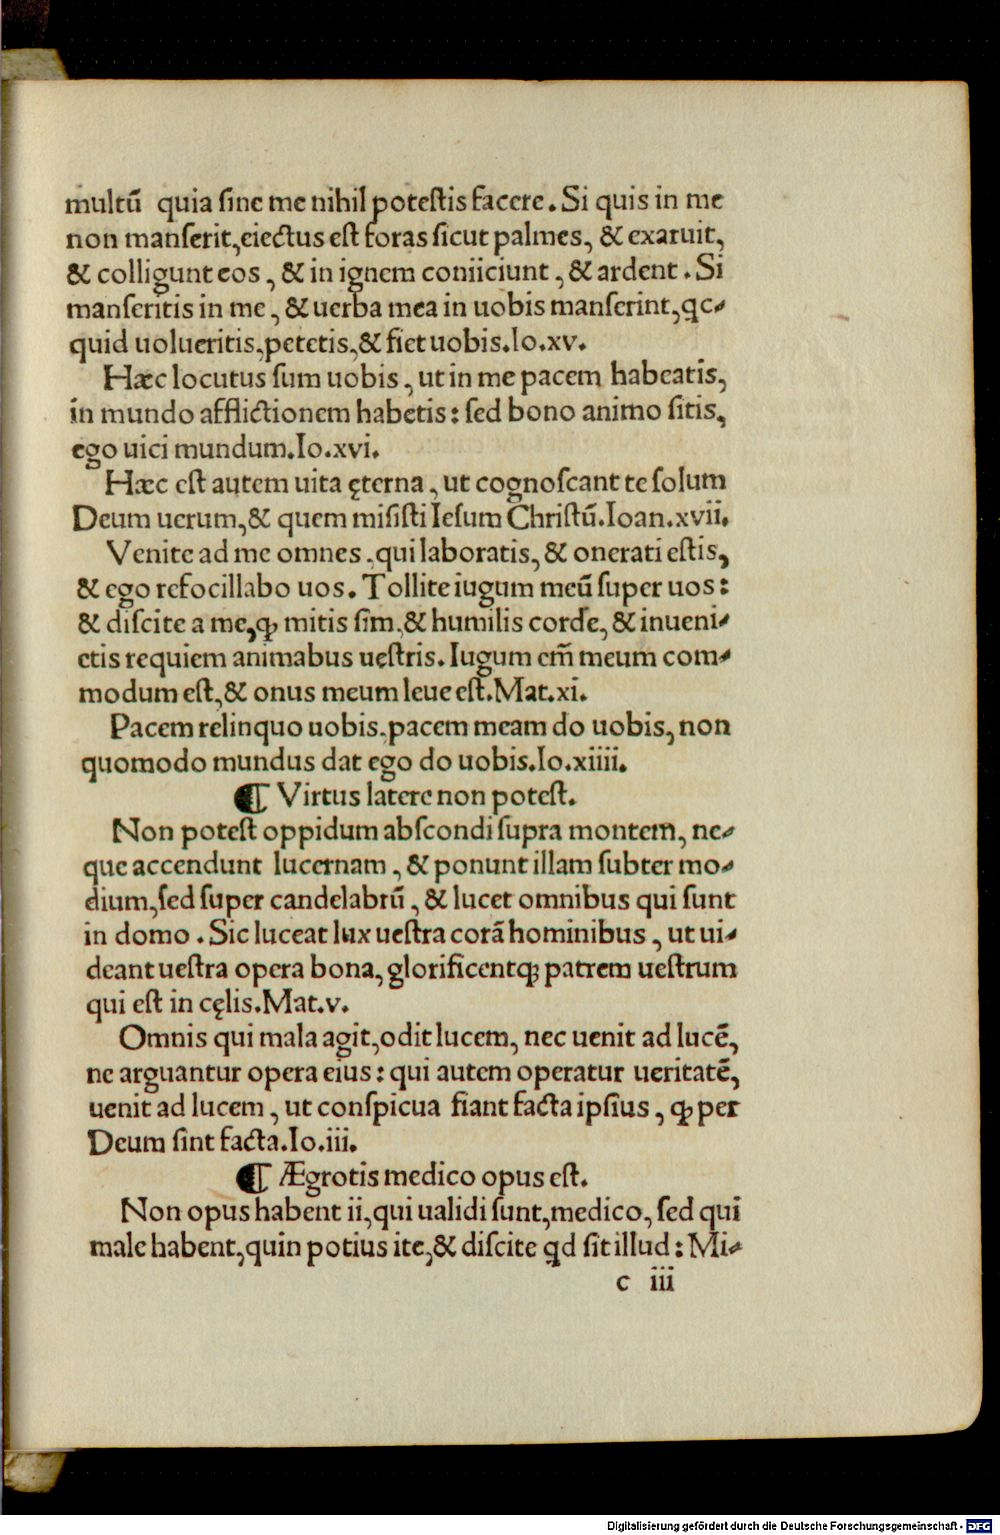 multū quia ſine me nihil poteſtis facere. Si quis in me
non manſerit, eiectus eſt foras ſicut palmes, & exaruit,
& colligunt eos, & in ignem coniiciunt, & ardent. Si
manſeritis in me, & uerba mea in uobis manſerint, qc-
quid uolueritis, petetis, & fiet uobis. Io. xv.
Hæc locutus ſum uobis, ut in me pacem habeatis,
in mundo afflictionem habetis: ſed bono animo ſitis,
ego uici mundum. Io. xvi.
Hæc eſt autem uita ęterna, ut cognoſcant te ſolum
Deum uerum, & quem miſiſti Ieſum Chriſtū. Ioan. xvii.
Venite ad me omnes, qui laboratis, & onerati eſtis,
& ego refocillabo uos. Tollite iugum meū ſuper uos:
& diſcite a me, ꝙ mitis ſim, & humilis corde, & inueni-
etis requiem animabus ueſtris. Iugum em̄ meum com-
modum eſt, & onus meum leue eſt. Mat. xi.
Pacem relinquo uobis, pacem meam do uobis, non
quomodo mundus dat ego do uobis. Io. xiiii.
¶ Virtus latere non poteſt.
Non poteſt oppidum abſcondi ſupra montem, ne-
que accendunt lucernam, & ponunt illam ſubter mo-
dium, ſed ſuper candelabrū, & lucet omnibus qui ſunt
in domo. Sic luceat lux ueſtra corā hominibus, ut ui-
deant ueſtra opera bona, glorificentqꝫ patrem ueſtrum
qui eſt in cęlis. Mat. v.
Omnis qui mala agit, odit lucem, nec uenit ad lucē,
ne arguantur opera eius: qui autem operatur ueritatē,
uenit ad lucem, ut conſpicua fiant facta ipſius, ꝙ per
Deum ſint facta. Io. iii.
¶ Ægrotis medico opus eſt.
Non opus habent ii, qui ualidi ſunt, medico, ſed qui
male habent, quin potius ite, & diſcite qd ſit illud: Mi-
c iii
Digitalisierung gefördert durch die Deutsche Forschungsgemeinschaft - DFG